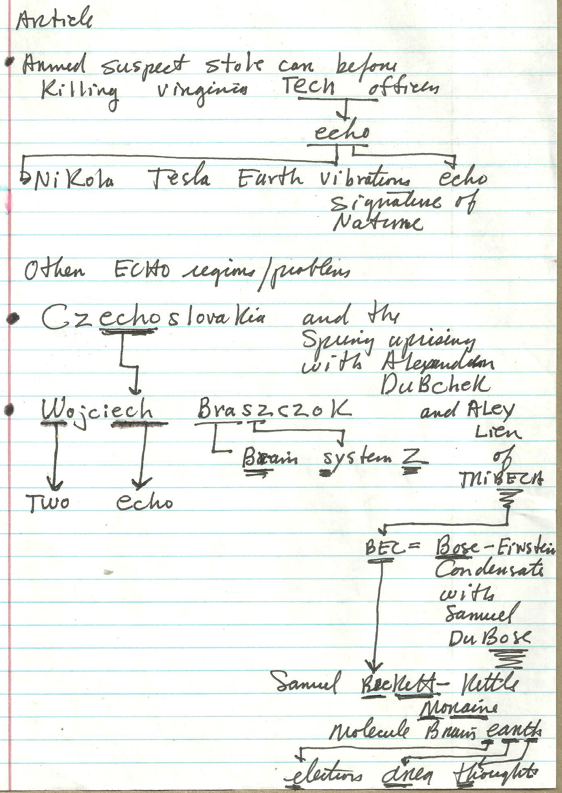 Article
• Armed suspect stole car before
Killing virginia Tech officer
echo
Nikola Tesla Earth vibrations echo
signature of
Nature
Other ECHO regions/problems
• Czechoslovakia and the
Spring uprising
with Alexander
DuBchek
• Wojciech Braszczok and ALey
Lien
Brain system Z of
TRiBECA
Two echo
BEC = Bose-Einstein
Condensate
with
Samuel
DuBose
Samuel Beckett - Kettle
Moraine
Molecule Brain earth
electrons area thoughts